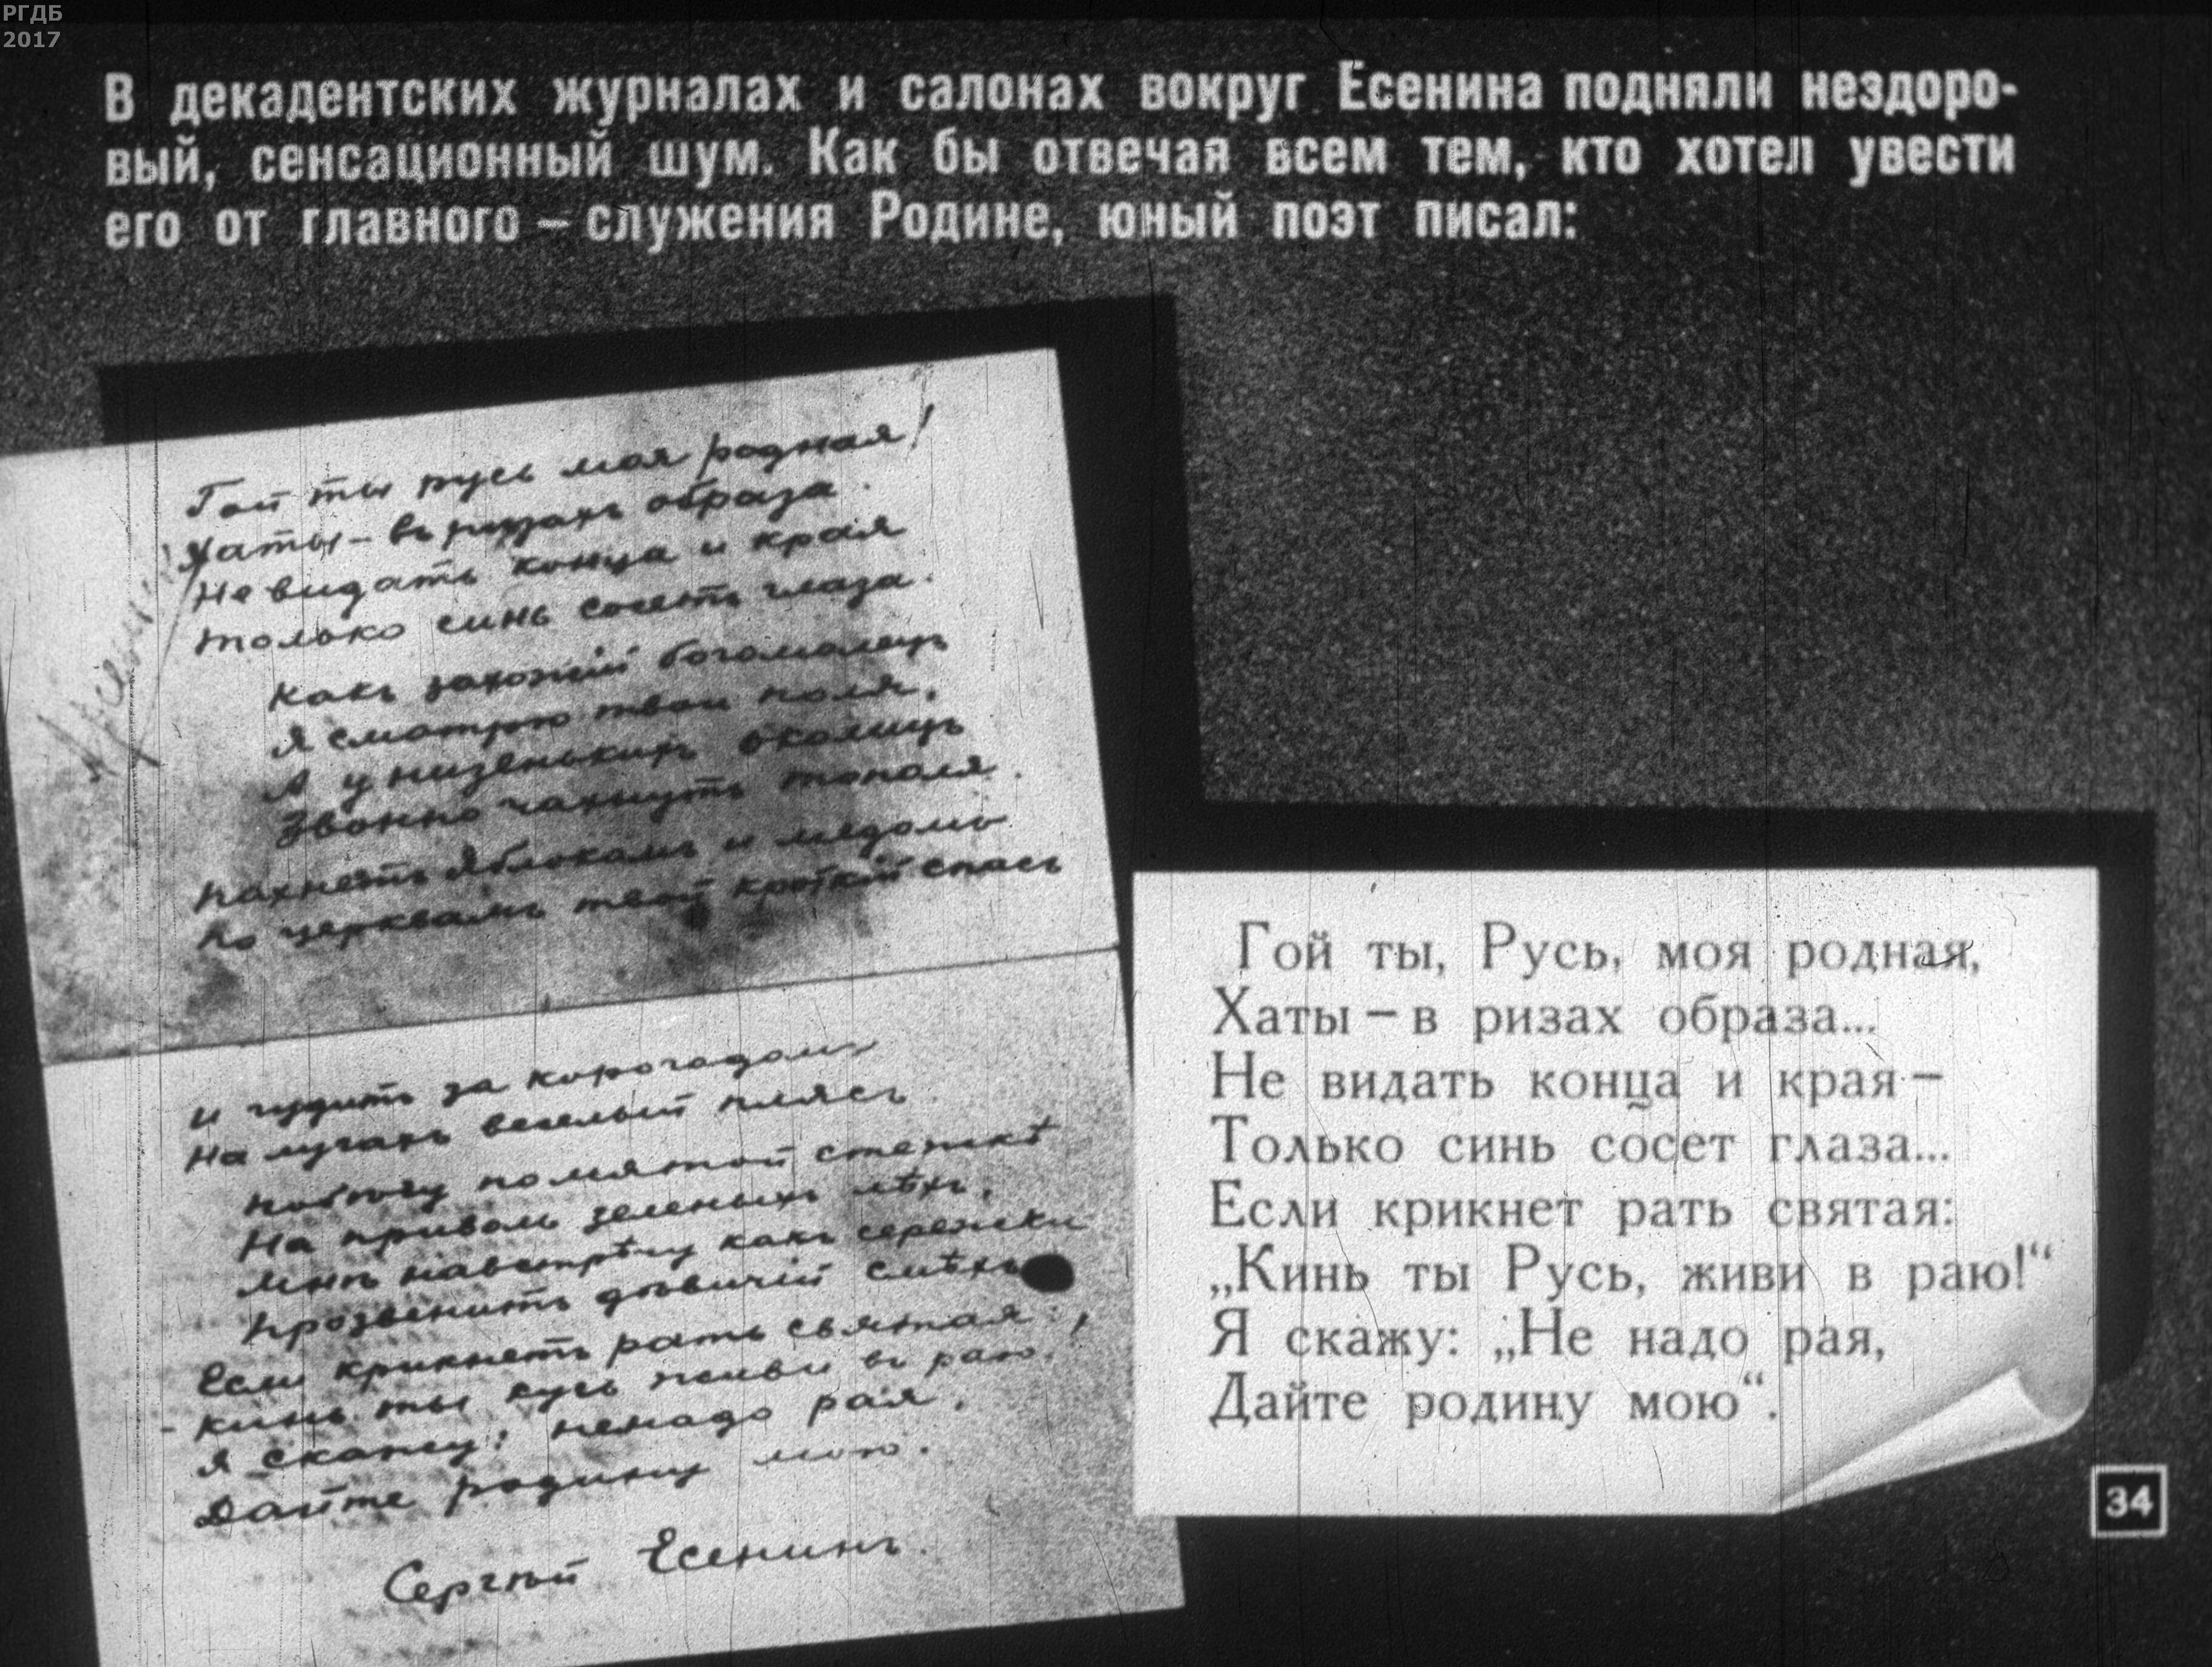 РГДБ
2017
В декадентских журналах и салонах вокруг Есенина подняли нездоро-
вый, сенсационный шум. Как бы отвечая всем тем, кто хотел увести
его от главного – служения Родине, юный поэт писал:
Гой ты русь моя родная!
Хаты – въ ризахъ образа.
Не видать конца и края
Только синь сосетъ глаза.
Какъ захожій богомолецъ
Я смотрю твои поля,
А у низенькихъ околицъ
Звонно чахнутъ тополя.
Пахнетъ яблокамъ и медомъ
По церквамъ твой кроткій спасъ
И гудитъ за корогодомъ
На лугахъ веселый плясъ
Побѣгу по мятой стежкѣ
На приволь зеленыхъ лѣхъ,
Мнѣ навстрѣчу какъ сережки
Прозвенитъ дѣвичій смѣхъ
Если крикнетъ рать святая:
– Кинь ты русь живи въ раю.
Я скажу: ненадо рая,
Дайте родину мою.
Сергѣй Есенинъ.
Гой ты, Русь, моя родная,
Хаты – в ризах образа...
Не видать конца и края –
Только синь сосет глаза...
Если крикнет рать святая:
„Кинь ты Русь, живи в раю!“
Я скажу: „Не надо рая,
Дайте родину мою“.
34